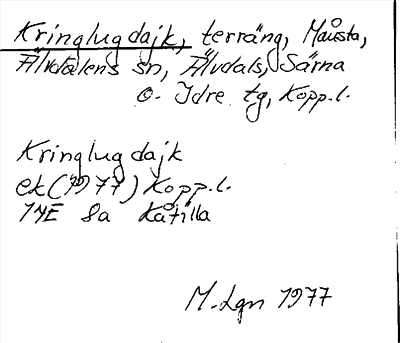 Kringlugdajk, terräng, Månsta,
Älvdalens sn, Älvdals, Särna
o. Idre tg, Kopp.l.
Kringlugdajk
ek (1977) Kopp.l.
14E 8a Kåtilla
M. Lgn 1977